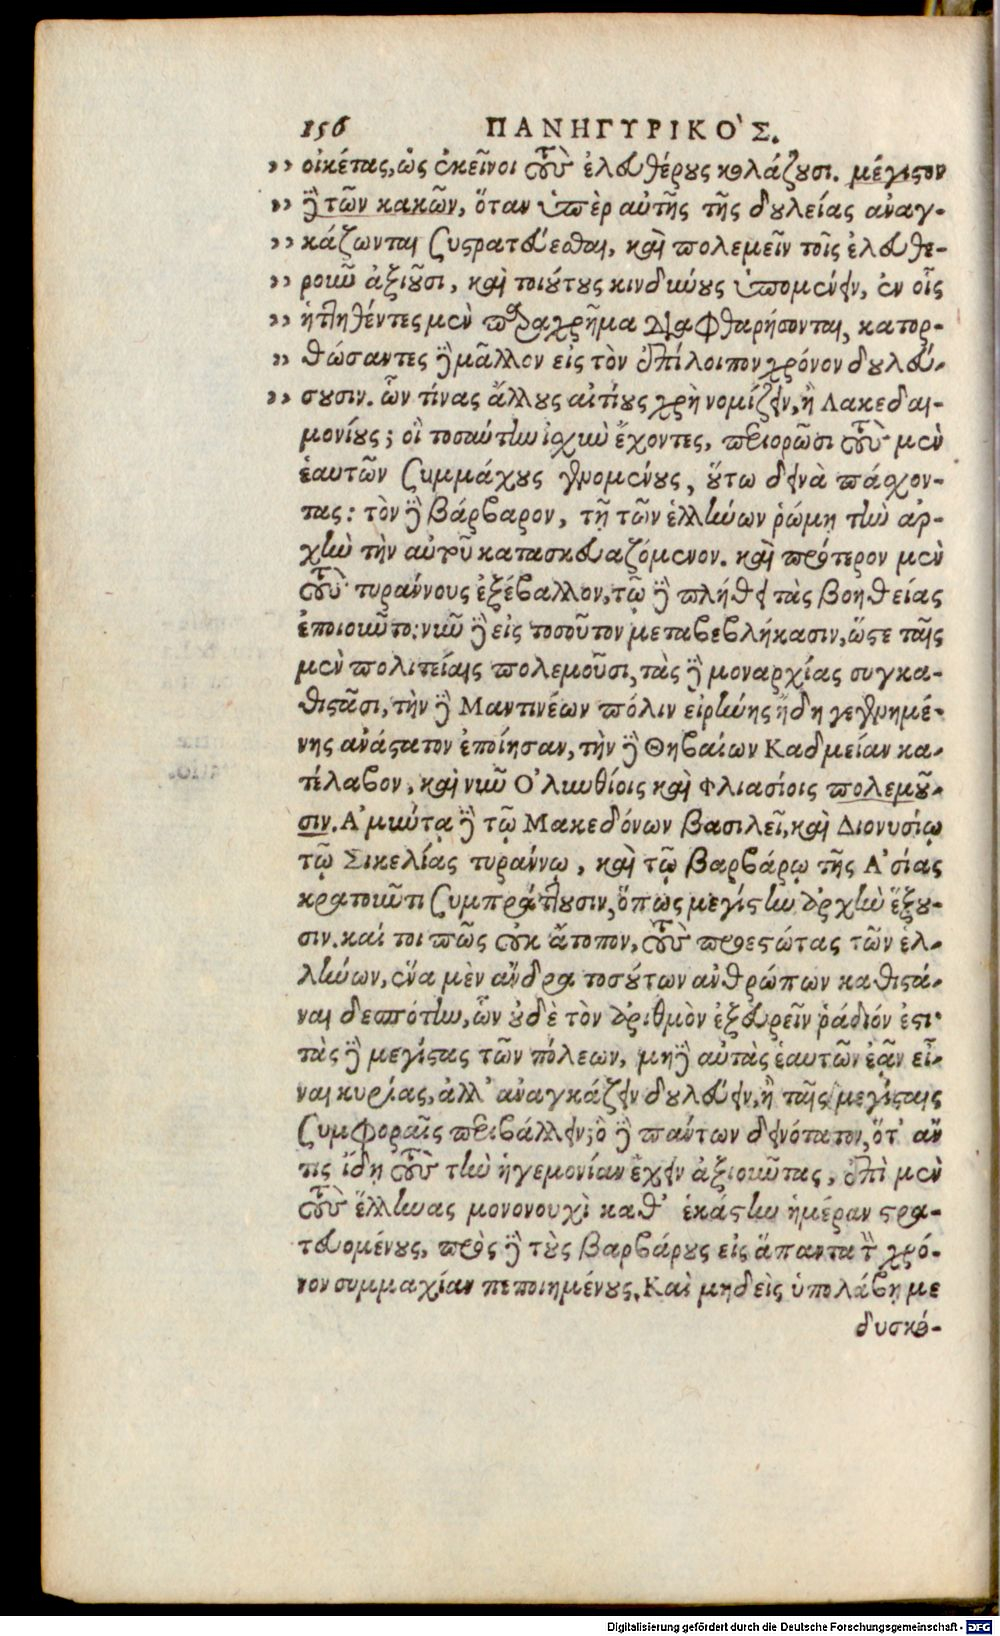 156 ΠΑΝΗΓΥΡΙΚΟ'Σ.
,, οἰκέτας, ὡς ἐκεῖνοι τοὺς ἐλευθέρους κολάζουσι. μέγιστον
,, δὲ τῶν κακῶν, ὅταν ὑπὲρ αὐτῆς τῆς δουλείας ἀναγ-
,, κάζωνται συστρατεύεσθαι, καὶ πολεμεῖν τοῖς ἐλευθε-
,, ροῦν ἀξιοῦσι, καὶ τοιούτους κινδύνους ὑπομένειν, ἐν οἷς
,, ἡττηθέντες μὲν παραχρῆμα διαφθαρήσονται, κατορ-
,, θώσαντες δὲ μᾶλλον εἰς τὸν ἐπίλοιπον χρόνον δουλεύ-
,, σουσιν. ὧν τίνας ἄλλους αἰτίους χρὴ νομίζειν, ἢ Λακεδαι-
μονίους; οἳ τοσαύτην ἰσχὺν ἔχοντες, περιορῶσι τοὺς μὲν
ἑαυτῶν συμμάχους γενομένους, οὕτω δεινὰ πάσχον-
τας: τὸν δὲ βάρβαρον, τῇ τῶν ἑλλήνων ῥώμῃ τὴν ἀρ-
χὴν τὴν αὑτοῦ κατασκευαζόμενον. καὶ πρότερον μὲν
τοὺς τυράννους ἐξέβαλλον, τῷ δὲ πλήθει τὰς βοηθείας
ἐποιοῦντο: νῦν δὲ εἰς τοσοῦτον μεταβεβλήκασιν, ὥστε ταῖς
μὲν πολιτείαις πολεμοῦσι, τὰς δὲ μοναρχίας συγκα-
θιστᾶσι, τὴν δὲ Μαντινέων πόλιν εἰρήνης ἤδη γεγενημέ-
νης ἀνάστατον ἐποίησαν, τὴν δὲ Θηβαίων Καδμείαν κα-
τέλαβον, καὶ νῦν Ο'λυνθίοις καὶ Φλιασίοις πολεμοῦ-
σιν. Α'μύντᾳ δὲ τῷ Μακεδόνων βασιλεῖ, καὶ Διονυσίῳ
τῷ Σικελίας τυράννῳ, καὶ τῷ βαρβάρῳ τῆς Α'σίας
κρατοῦντι συμπράττουσιν, ὅπως μεγίστην ἀρχὴν ἕξου-
σιν. καί τοι πῶς οὐκ ἄτοπον, τοὺς προεστώτας τῶν ἑλ-
λήνων, ἕνα μὲν ἄνδρα τοσούτων ἀνθρώπων καθιστά-
ναι δεσπότην, ὧν οὐδὲ τὸν ἀριθμὸν ἐξευρεῖν ῥάδιόν ἐστι·
τὰς δὲ μεγίστας τῶν πόλεων, μηδὲ αὐτὰς ἑαυτῶν ἐᾷν εἶ-
ναι κυρίας, ἀλλ' ἀναγκάζειν δουλεύειν, ἢ ταῖς μεγίσταις
συμφοραῖς περιβάλλειν; ὃ δὲ πάντων δεινότατον, ὅτ' ἄν
τις ἴδῃ τοὺς τὴν ἡγεμονίαν ἔχειν ἀξιοῦντας, ἐπὶ μὲν
τοὺς ἕλληνας μονονουχὶ καθ' ἑκάστην ἡμέραν στρα-
τευομένους, πρὸς δὲ τοὺς βαρβάρους εἰς ἅπαντα τὸν χρό-
νον συμμαχίαν πεποιημένους. Καὶ μηδεὶς ὑπολάβῃ με
δυσκό-
Digitalisierung gefördert durch die Deutsche Forschungsgemeinschaft - DFG